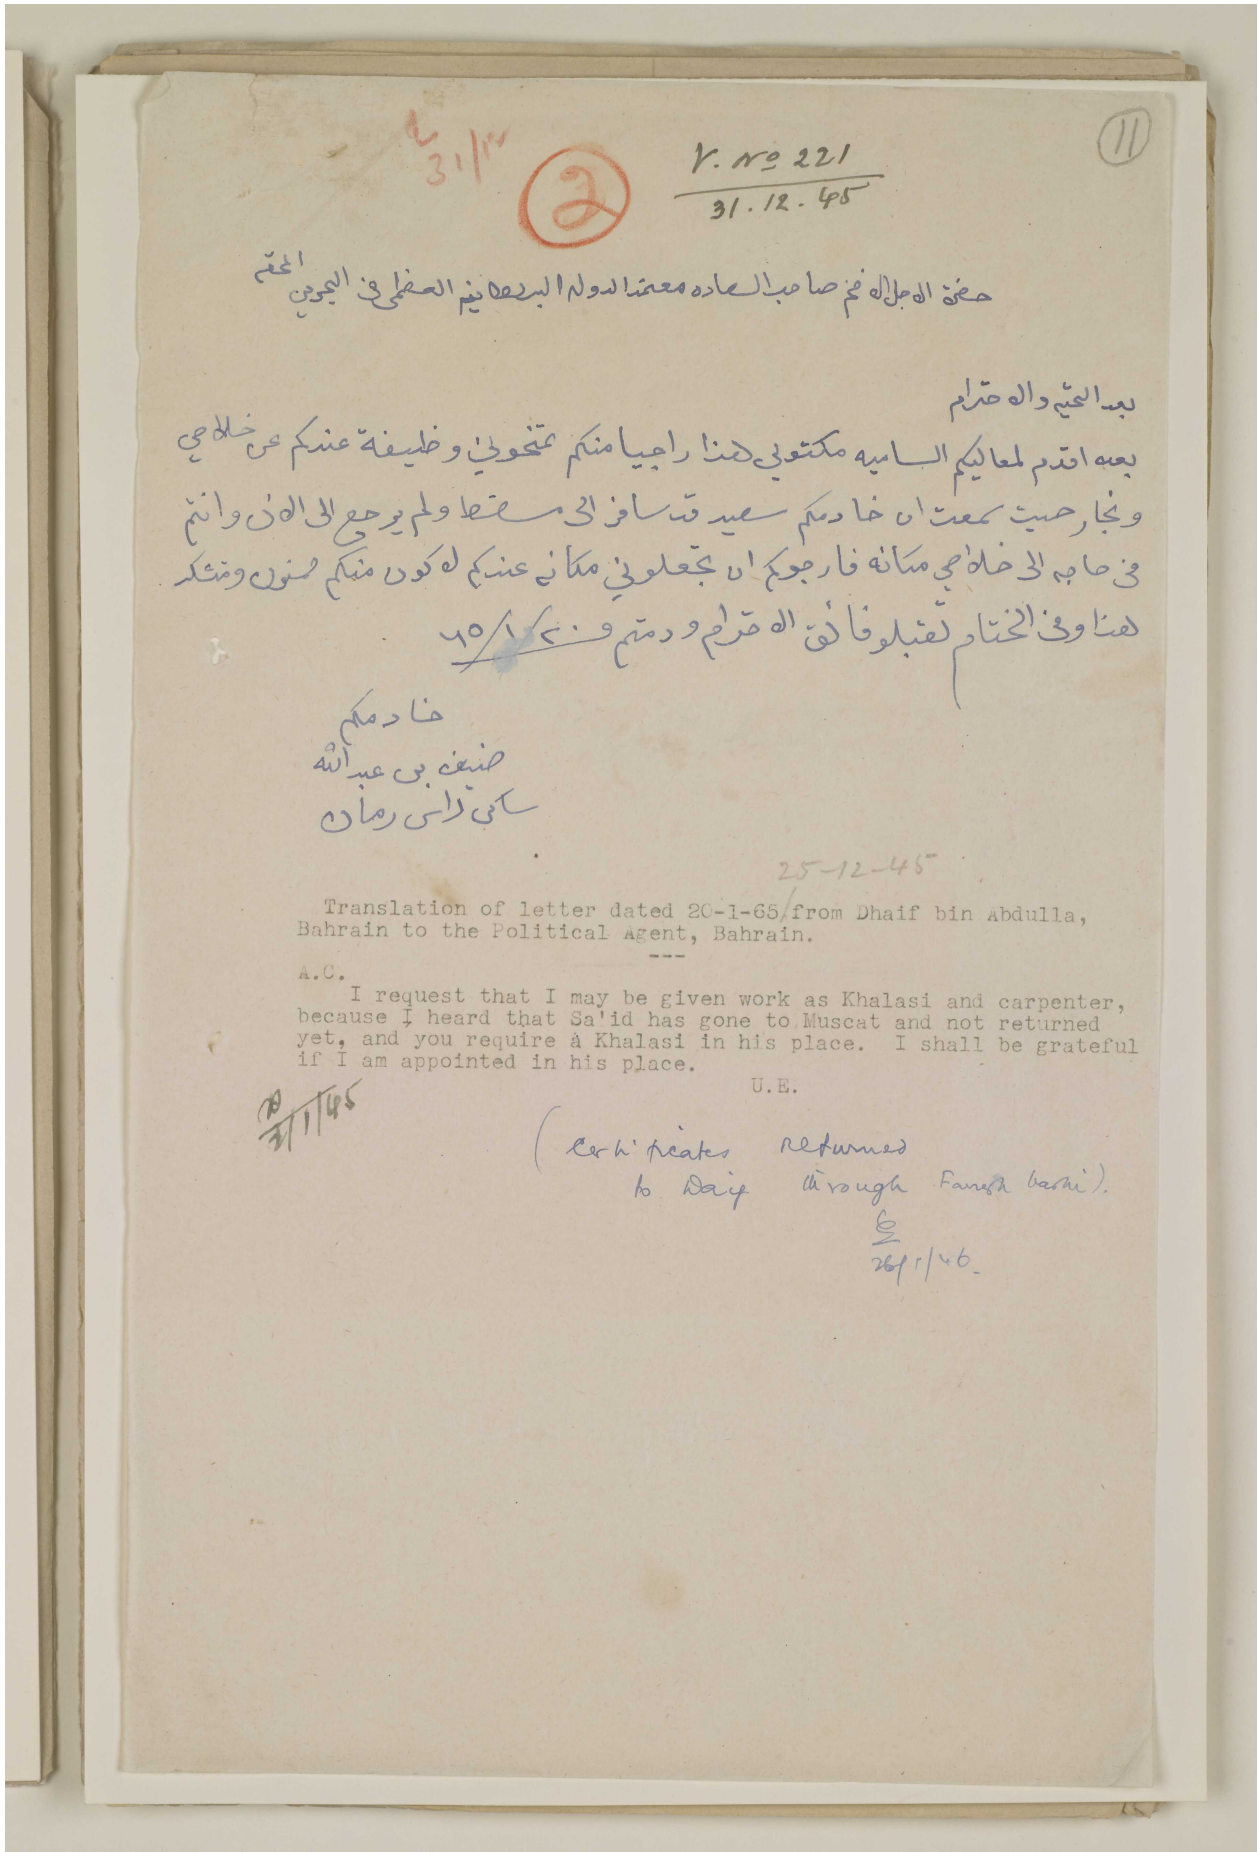 31/12
2
V. No 221
31.12.45
11
حضرة الاجل الافخم صاحب السعاده معتمد الدوله البريطانيه العظمى في البحرين المحترم
بعد التحيه والاحترام
بعده اقدم لمعاليكم الساميه مكتوبي هذا راجيا منكم تمنحوني وظيفة عندكم عن خلاصي
ونجار حيت سمعت ان خادمكم سعيد قد سافر الى مسقط ولم يرجع الى الان وانتم
في حاجه الى خلاصي مكانه فارجوكم ان تجعلوني مكانه عندكم لاكون منكم ممنون ومتشكر
هذا وفي الختام تقبلو فائق الاحترام ودمتم في ٢٠/١/٦٥
خادمكم
ضيف بن عبدالله
ساكن راس رمان
25-12-45
Translation of letter dated 20-1-65/from Dhaif bin Abdulla,
Bahrain to the Political Agent, Bahrain.
---
A.C.
I request that I may be given work as Khalasi and carpenter,
because I heard that Sa'id has gone to Muscat and not returned
yet, and you require a Khalasi in his place. I shall be grateful
if I am appointed in his place.
U.E.
(Certificates returned
to Daif through Farash bashi).
26/1/46.